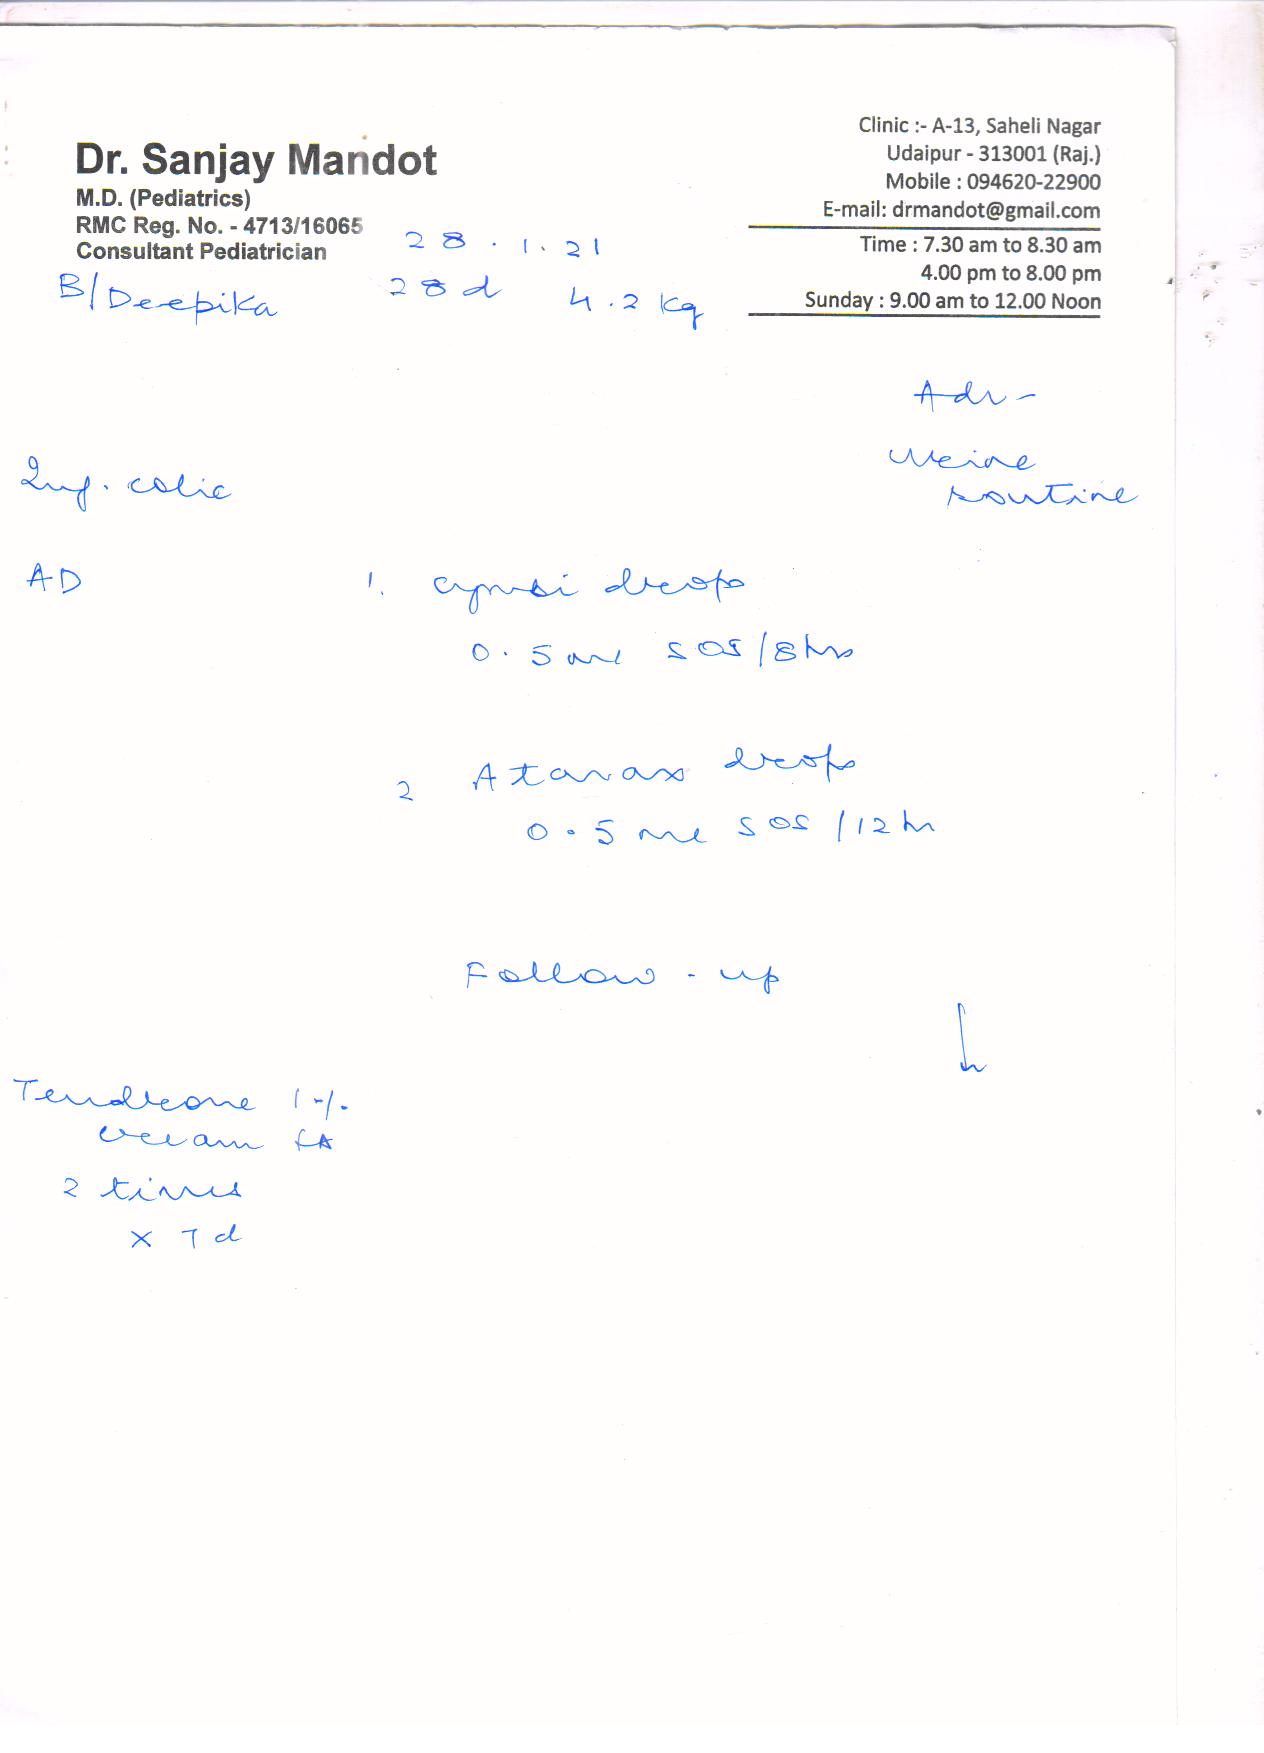 Dr. Sanjay Mandot
M.D. (Pediatrics)
RMC Reg. No. - 4713/16065
Consultant Pediatrician
Clinic :- A-13, Saheli Nagar
Udaipur - 313001 (Raj.)
Mobile : 094620-22900
E-mail: drmandot@gmail.com
Time : 7.30 am to 8.30 am
4.00 pm to 8.00 pm
Sunday : 9.00 am to 12.00 Noon
28.1.21
B/Deepika 28d 4.2 kg
Adv -
Urine
routine
Inf. colic
AD
1. drops
0.5 ml SOS/8hrs
2 Atarax drops
0.5 ml SOS/12hr
Follow-up
1%
cream LA
2 times
x 7d